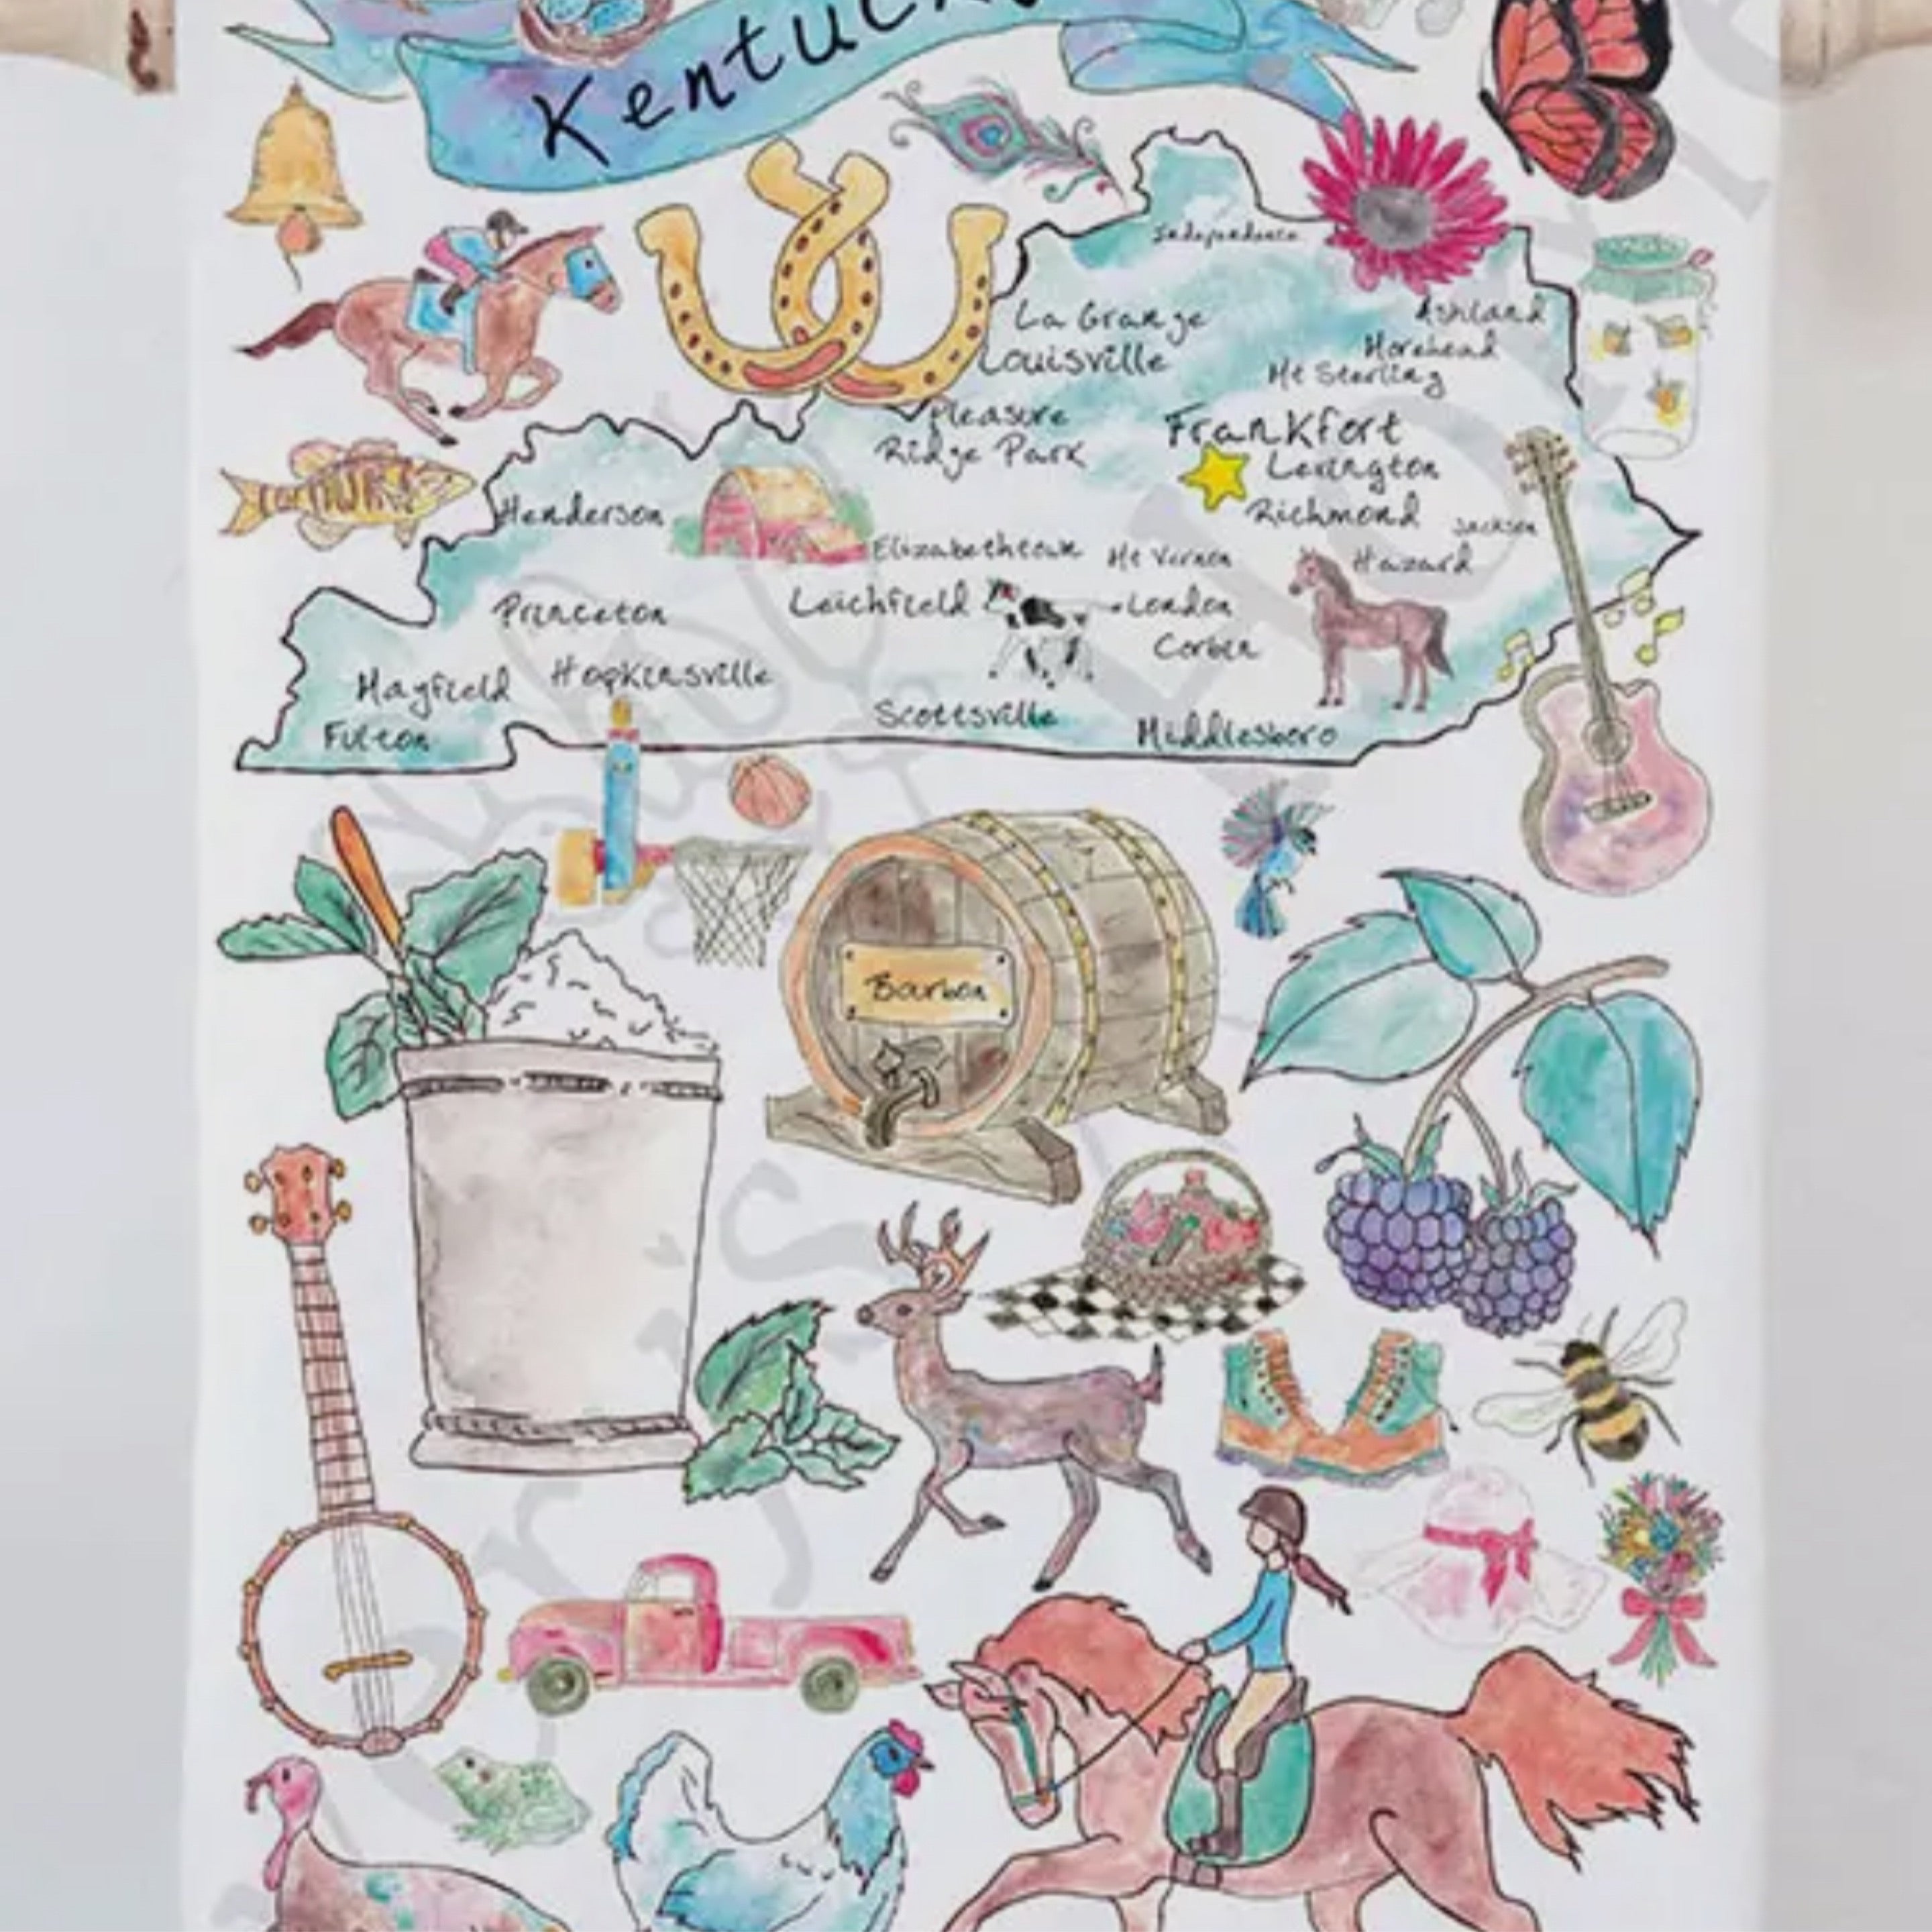 Kentucky
Independence
La Grange
Ashland
Louisville
Morehead
Mt Sterling
Pleasure
Ridge Park
Frankfort
Lexington
Henderson
Richmond
Jackson
Elizabethtown
Mt Vernon
Hazard
Princeton
Leichfield
London
Corbin
Mayfield
Hopkinsville
Fulton
Scottsville
Middlesboro
Barbon